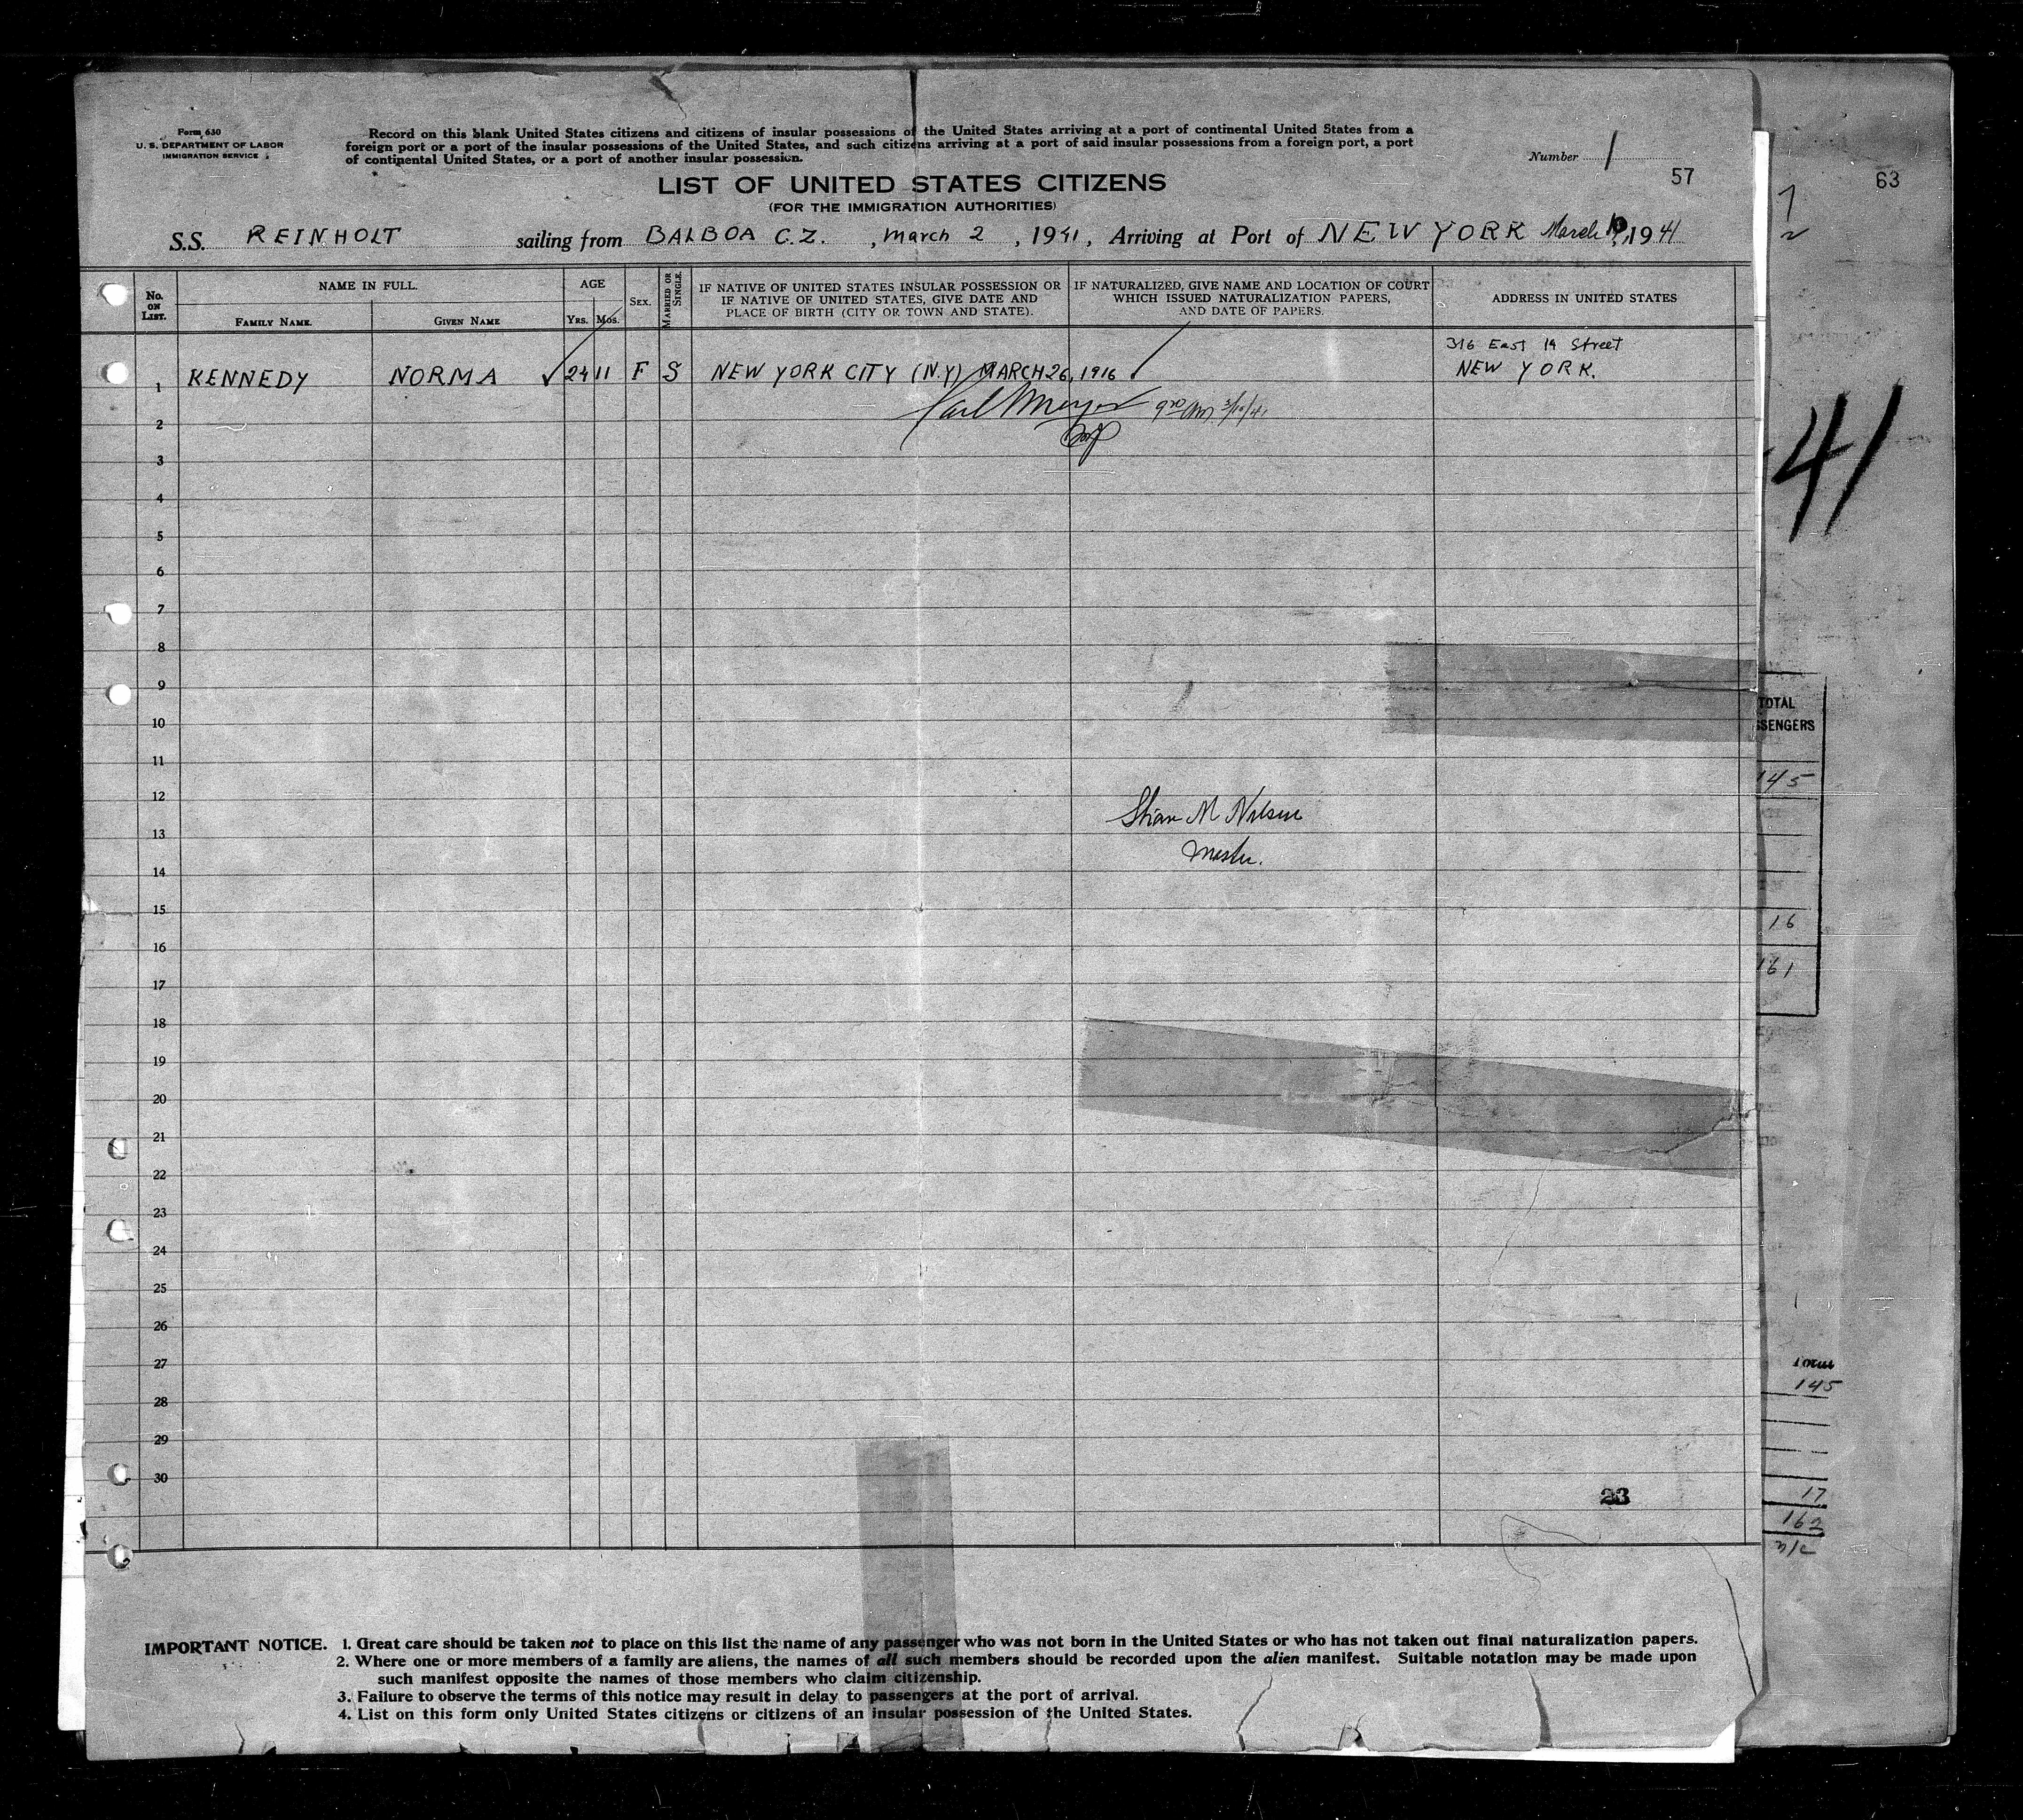 Form 630
U. S. DEPARTMENT OF LABOR
IMMIGRATION SERVICE
Record on this blank United States citizens and citizens of insular possessions of the United States arriving at a port of continental United States from a
foreign port or a port of the insular possessions of the United States, and such citizens arriving at a port of said insular possessions from a foreign port, a port
of continental United States, or a port of another insular possession.
Number 1
57
63
LIST OF UNITED STATES CITIZENS
(FOR THE IMMIGRATION AUTHORITIES)
S.S. REINHOLT sailing from BALBOA C.Z. , March 2 , 1941, Arriving at Port of NEW YORK March 10, 1941
No. on List.
NAME IN FULL.
Family Name.
Given Name
AGE
Yrs.
Mos.
Sex.
Married or Single.
IF NATIVE OF UNITED STATES INSULAR POSSESSION OR
IF NATIVE OF UNITED STATES, GIVE DATE AND
PLACE OF BIRTH (CITY OR TOWN AND STATE).
IF NATURALIZED, GIVE NAME AND LOCATION OF COURT
WHICH ISSUED NATURALIZATION PAPERS,
AND DATE OF PAPERS.
ADDRESS IN UNITED STATES
316 East 19 Street
1 KENNEDY NORMA 24 11 F S NEW YORK CITY (N.Y) MARCH 26, 1916 NEW YORK.
3/10/41
2
3
4
41
5
6
7
8
9
TOTAL
10
SSENGERS
11
145
12
13
Master.
14
15
16
16
17
161
18
19
20
21
22
23
24
25
26
27
Total
28
145
29
30
23
17
162
IMPORTANT NOTICE. 1. Great care should be taken not to place on this list the name of any passenger who was not born in the United States or who has not taken out final naturalization papers.
2. Where one or more members of a family are aliens, the names of all such members should be recorded upon the alien manifest. Suitable notation may be made upon
such manifest opposite the names of those members who claim citizenship.
3. Failure to observe the terms of this notice may result in delay to passengers at the port of arrival.
4. List on this form only United States citizens or citizens of an insular possession of the United States.